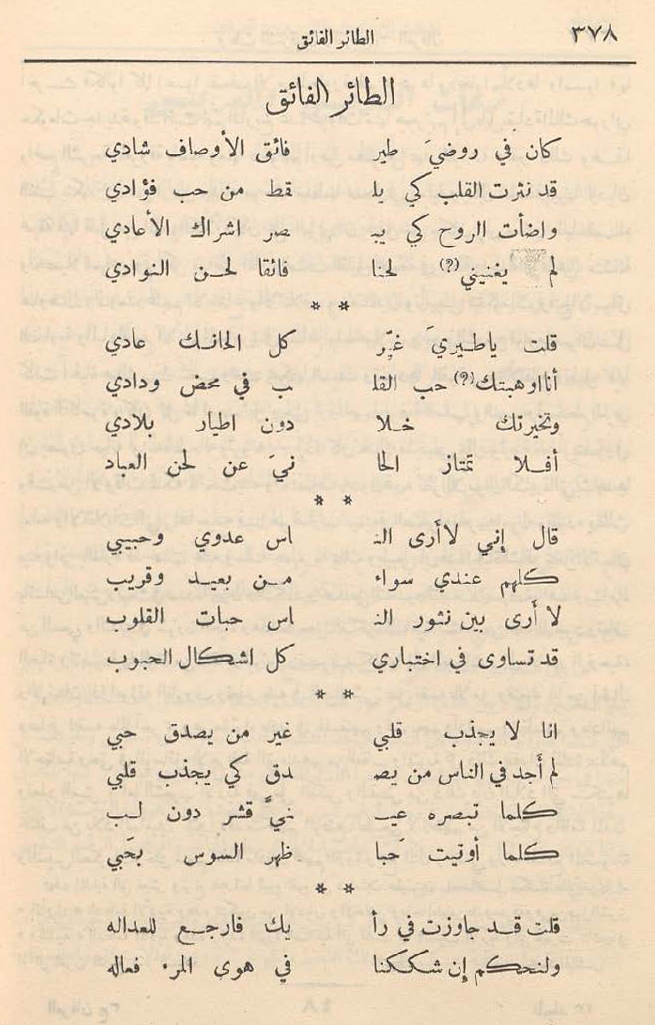 ٣٧٨ الطائر الفائق
الطائر الفائق
كان في روضيَ طير فائق الأوصاف شادي
قد نثرت القلب كي يلـ ـقط من حب فؤادي
واضأت الروح كي يبـ ـصر اشراك الأعادي
لم يغنيني (?) لحنا فائقا لحن النوادي
* *
قلت ياطيريَ غيّر كل الحانك عادي
أنا اوهبتك (?) حب القلـ ـب في محض ودادي
وتخيرتك خلا دون اطيار بلادي
أفلا تمتاز الحا نيَ عن لحن العباد
* *
قال إني لا أرى النـ ـاس عدوي وحبيبي
كلهم عندي سواء من بعيد وقريب
لا أرى بين نشور النـ ـاس حبات القلوب
قد تساوى في اختباري كل اشكال الحبوب
* *
انا لا يجذب قلبي غير من يصدق حبي
لم أجد في الناس من يصـ ـدق كي يجذب قلبي
كلما تبصره عيـ ـنيَّ قشر دون لب
كلما أوتيت حبا ظهر السوس بحَبي
* *
قلت قد جاوزت في رأ يك فارجع للعداله
ولنحكم إن شككنا في هوى المرء فعاله